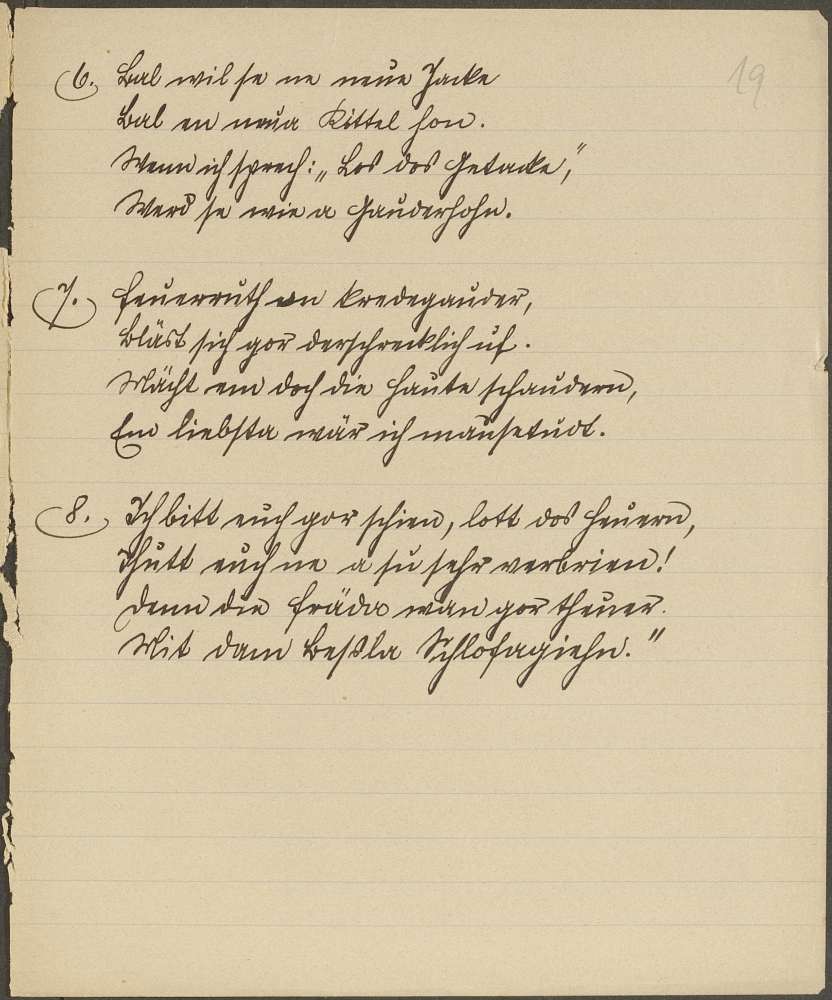 19
6. Bal wil se ne neue Jacke
Bal en neua Kittel hon.
Wenn ich sprech: „Los dos Getacke,"
Werd se wie a Gauderhohn.
7. Feuerruth on kredegauder,
Bläst sich gor derschrecklich uf.
Mächt em doch die Haute schaudern,
Em liebsta wär ich mausetudt.
8. Ich bitt euch gor schien, lott dos Heuern,
Thutt euch ne a su sehr verbrien!
Denn die Fräda wan gor theuer.
Mit dam Beßla Schlofagiehn."